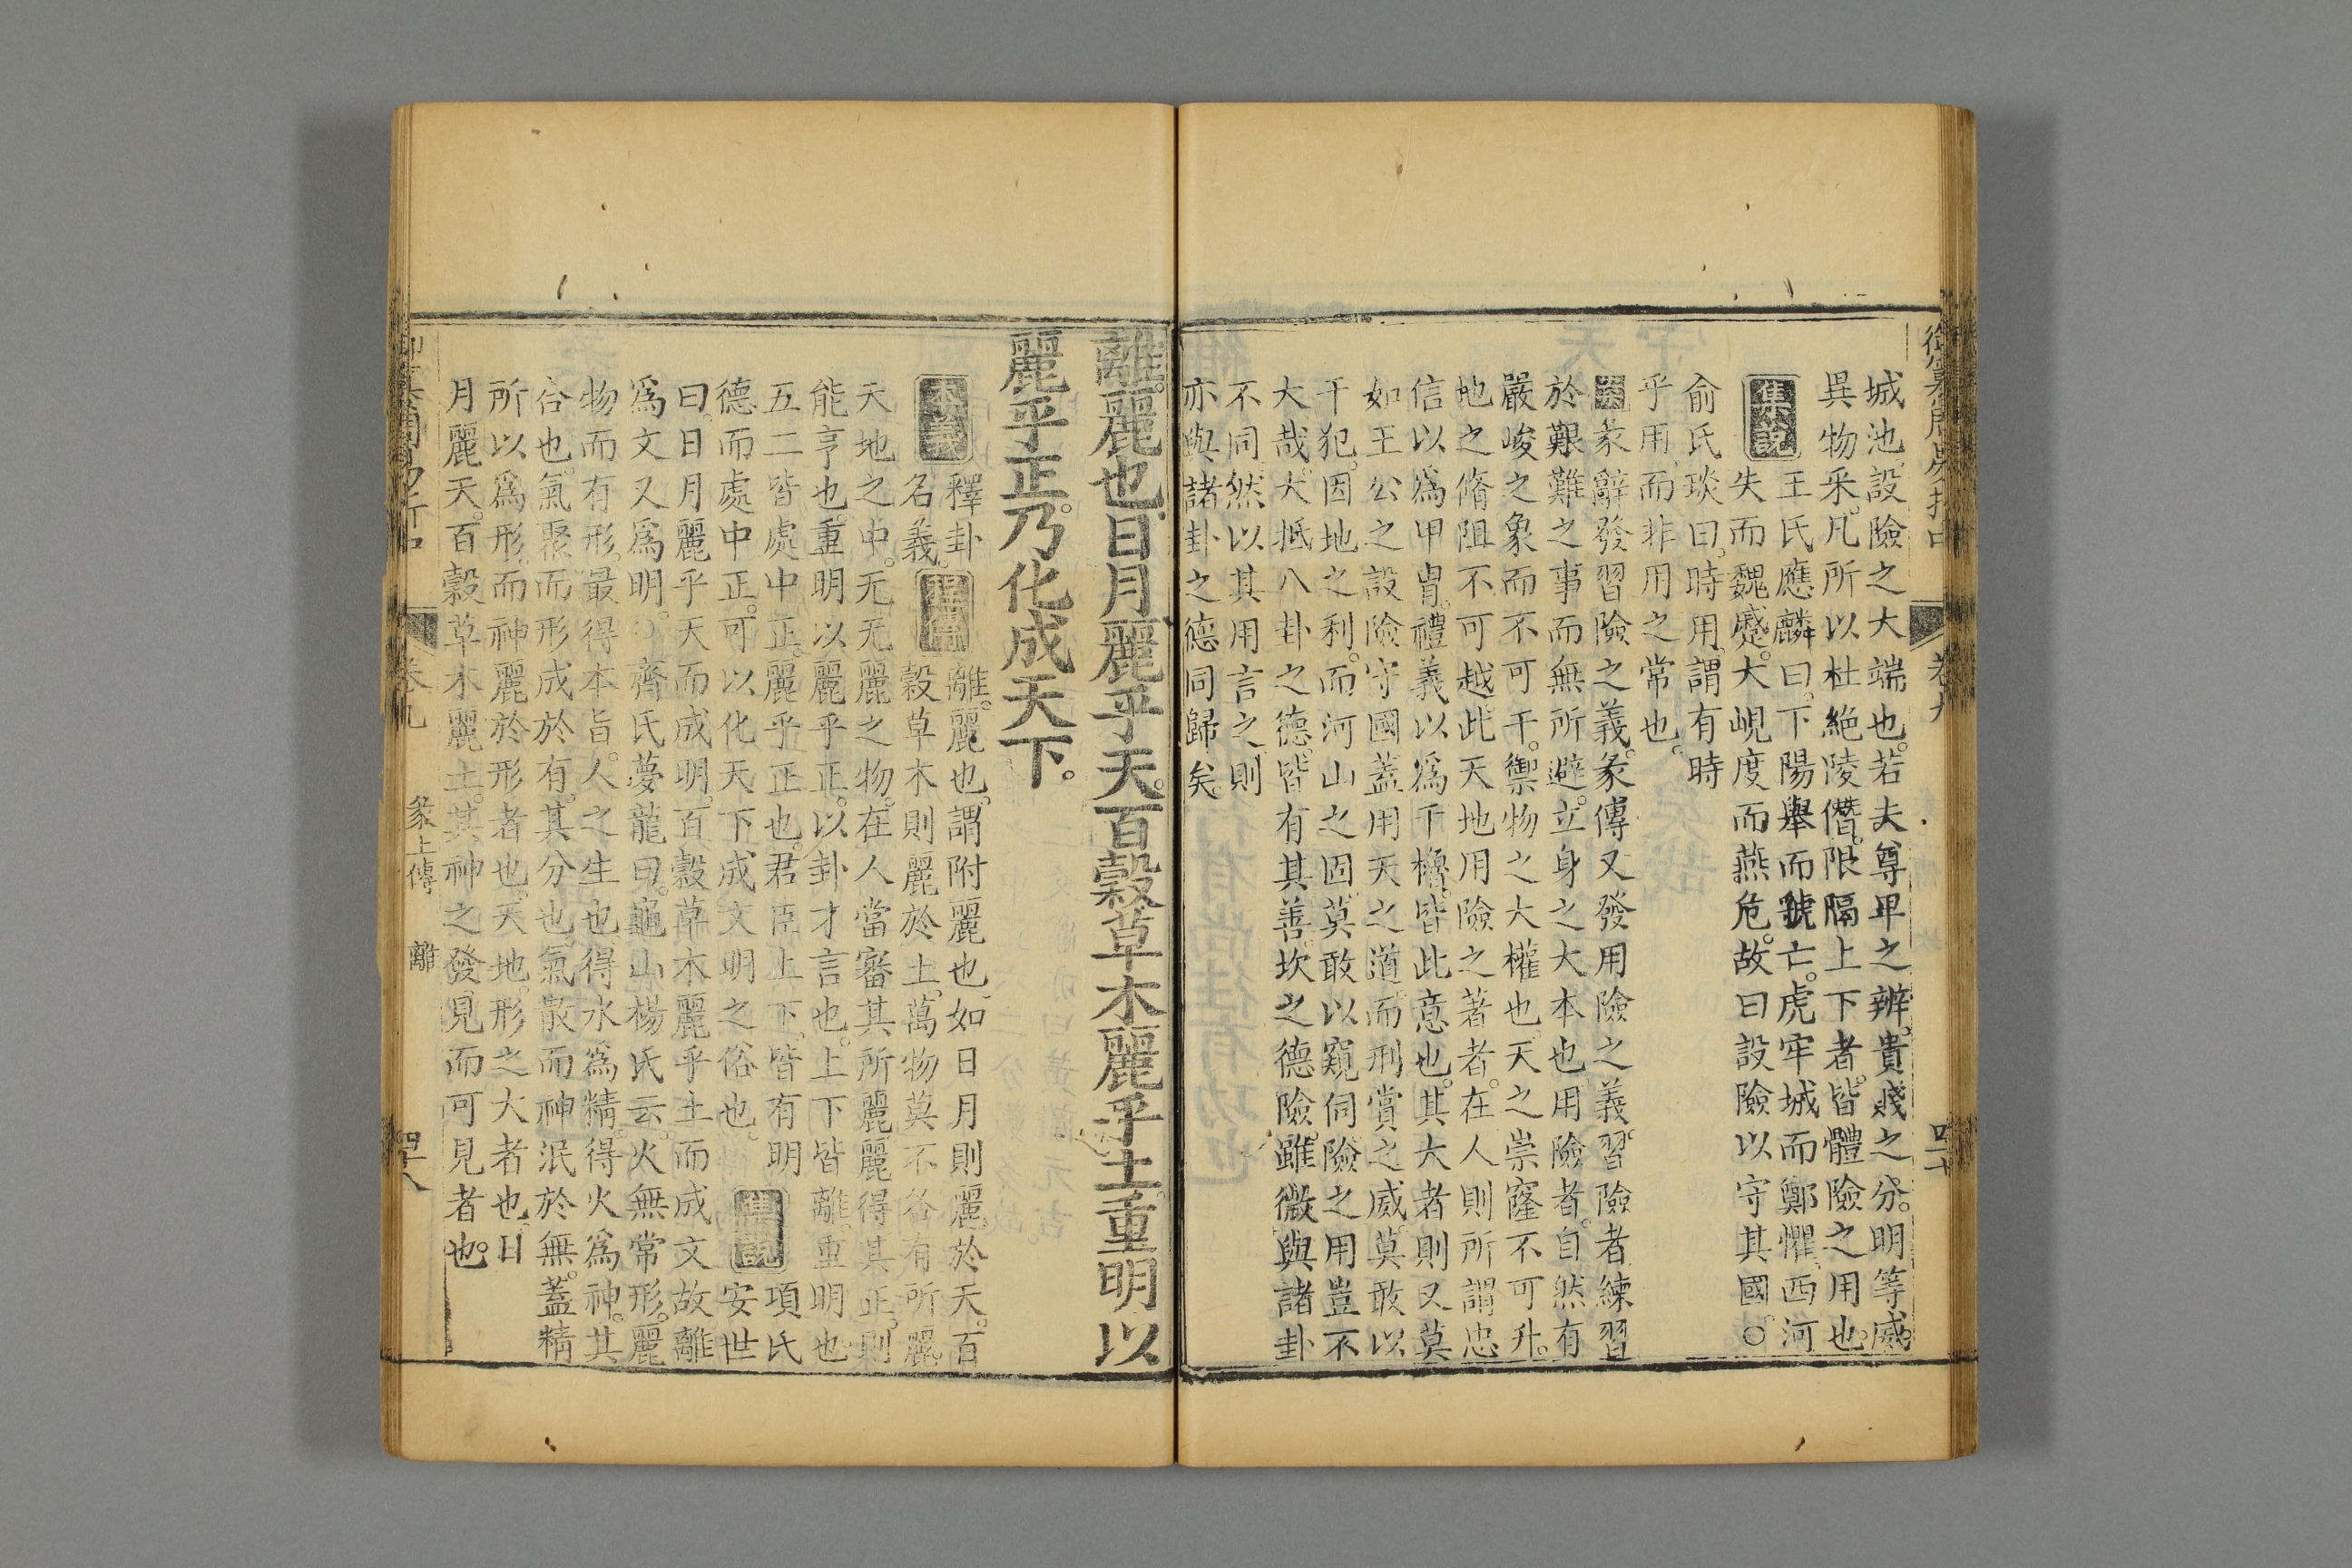 城池設險之大端也。若夫尊卑之辨。貴賤之分。明等威。
異物采。凡所以杜絕陵僭。限隔上下者。皆體險之用也。
集說
王氏應麟曰。下陽舉而虢亡。虎牢城而鄭懼。西河
失而魏蹙。大峴度而燕危。故曰設險以守其國。○
俞氏琰曰。時用。謂有時
乎用。而非用之常也。
案彖辭發習險之義。彖傳又發用險之義。習險者練習
於艱難之事而無所避。立身之大本也用險者。自然有
嚴峻之象而不可干。禦物之大權也。天之崇窿不可升。
地之脩阻不可越。此天地用險之著者。在人則所謂忠
信以爲甲冑。禮義以爲干櫓。皆此意也。其大者則又莫
如王公之設險守國蓋用天之道。而刑賞之威。莫敢以
干犯。因地之利。而河山之固。莫敢以窺伺險之用豈不
大哉。大抵八卦之德。皆有其善坎之德險。雖微與諸卦
不同。然以其用言之。則
亦與諸卦之德同歸矣
卷九
離。麗也。日月麗乎天。百穀草木麗乎土。重明以
麗乎正。乃化成天下。
本義
釋卦
名義。
程傳
離。麗也。謂附麗也。如日月則麗。於天。百
穀草木則麗於土。萬物莫不各有所麗。
天地之中。无无麗之物。在人當審其所麗麗得其正。則
能亨也。重明以麗乎正。以卦才言也。上下皆離。重明也
五二皆處中正。麗乎正也。君臣上下。皆有明
德而處中正。可以化天下成文明之俗也。
集說
項氏
安世
曰。日月麗乎天而成明。百穀草木麗乎土而成文故離
爲文又爲明。○齊氏夢龍曰。龜山楊氏云。火無常形。麗
物而有形。最得本旨。人之生也得水爲精。得火爲神。其
合也。氣聚而形成於有。其分也。氣散而神泯於無。蓋精
所以爲形。而神麗於形者也。天地。形之大者也。日
月麗天。百穀草木麗土。其神之發見而可見者也。
卷九
彖上傳
離